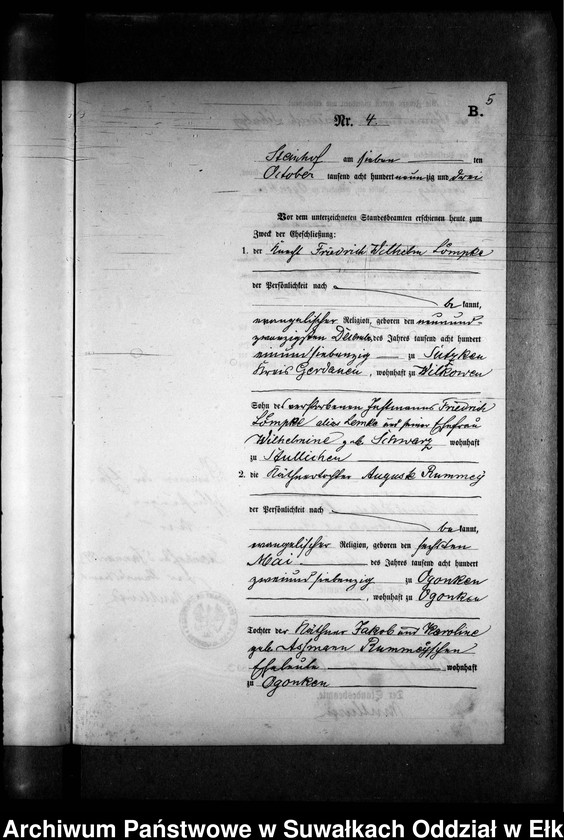 5
B.
Nr. 4
Steinhof am sieben ten
October tausend acht hundert neunzig und drei
Vor dem unterzeichneten Standesbeamten erschienen heute zum
Zweck der Eheschließung:
1. der Knecht Friedrich Wilhelm Lömpke
der Persönlichkeit nach
be kannt,
evangelischer Religion, geboren den neunund-
zwanzigsten des Jahres tausend acht hundert
einundsiebenzig zu
Kreis Gerdauen, wohnhaft zu Wilkowen
Sohn des verstorbenen Instmanns Friedrich
Lömpke alias Lemke und seiner Ehefrau
Wilhelmine geb. Schwarz wohnhaft
zu Stullichen
2. die Käthnertochter Auguste Rummey
der Persönlichkeit nach
be kannt,
evangelischer Religion, geboren den sechsten
Mai des Jahres tausend acht hundert
zweiundsiebenzig zu Ogonken
, wohnhaft zu Ogonken
Tochter der Käthner Jakob und Karoline
geb. Assmann Rummeyschen
Eheleute wohnhaft
zu Ogonken
Archiwum Państwowe w Suwałkach Oddział w Ełk